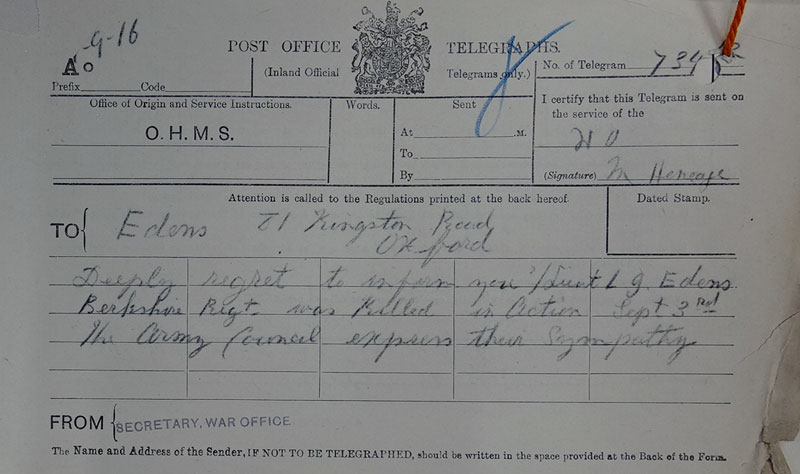 -9-16
POST OFFICE TELEGRAPHS.
A o
(Inland Official Telegrams only.)
No. of Telegram 734
Prefix Code
Office of Origin and Service Instructions.
Words.
Sent
I certify that this Telegram is sent on
the service of the
O.H.M.S.
At .M.
W O
To
By
(Signature) M Heneage
Attention is called to the Regulations printed at the back hereof.
Dated Stamp.
TO { Edens 81 Kingston Road
Oxford
Deeply regret to inform you 2/Lieut L G. Edens
Berkshire Regt. was Killed in Action Sept 3rd
The Army Council express their Sympathy
FROM { SECRETARY, WAR OFFICE
The Name and Address of the Sender, IF NOT TO BE TELEGRAPHED, should be written in the space provided at the Back of the Form.